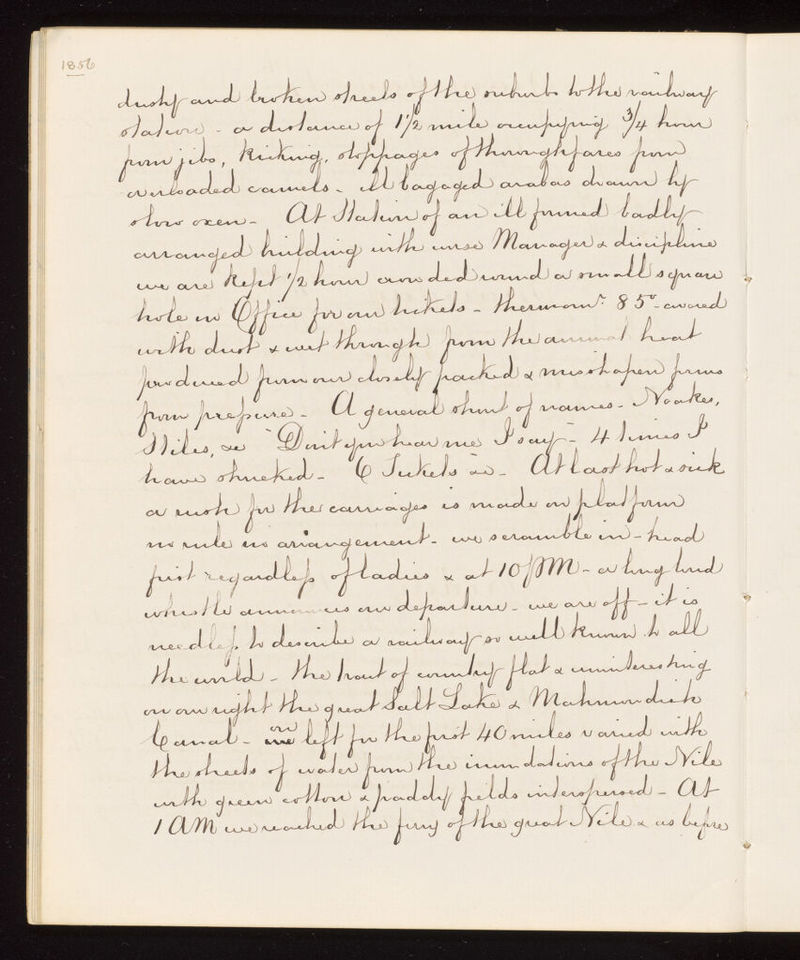 1856
dusty and broken streets of the suburb to the railway
station - a distance of 1½ mile occupying ¾ hour
from jibs, kicking, stoppages of thoroughfares from
overloaded camels - ill bagaged arabas drawn by
slow oxen - At Station of an ill formed badly
arranged building with worse Manager & discipline
we are kept ½ hour crowded round a small square
hole in Office for our tickets - thermomr 85° - covered
with dust & wet through from the animal heat
produced from our closely packed & misshapen forms
from pressure - A general shout of names - Noakes,
Stiles, &c "Dont you hear me I say" - 4 times I
have shrieked - 6 Tickets &c - At last hot & sick
a rush for the carriages is made on platform
no rule no arrangement - we scramble in - head
first regardless of ladies & at 10 PM - a long loud
whistle announces our departure - we are off - it is
needless to describe a railway so well known to all
the world - the tract of country flat & uninteresting
on our right the great Salt Lake & Mahmoudieh
Canal - on left for the first 40 miles varied with
the sheets of water from the inundations of the Nile
with green cotton & paddy fields interspersed - At
1 AM we reached the ferry of the great Nile & as before